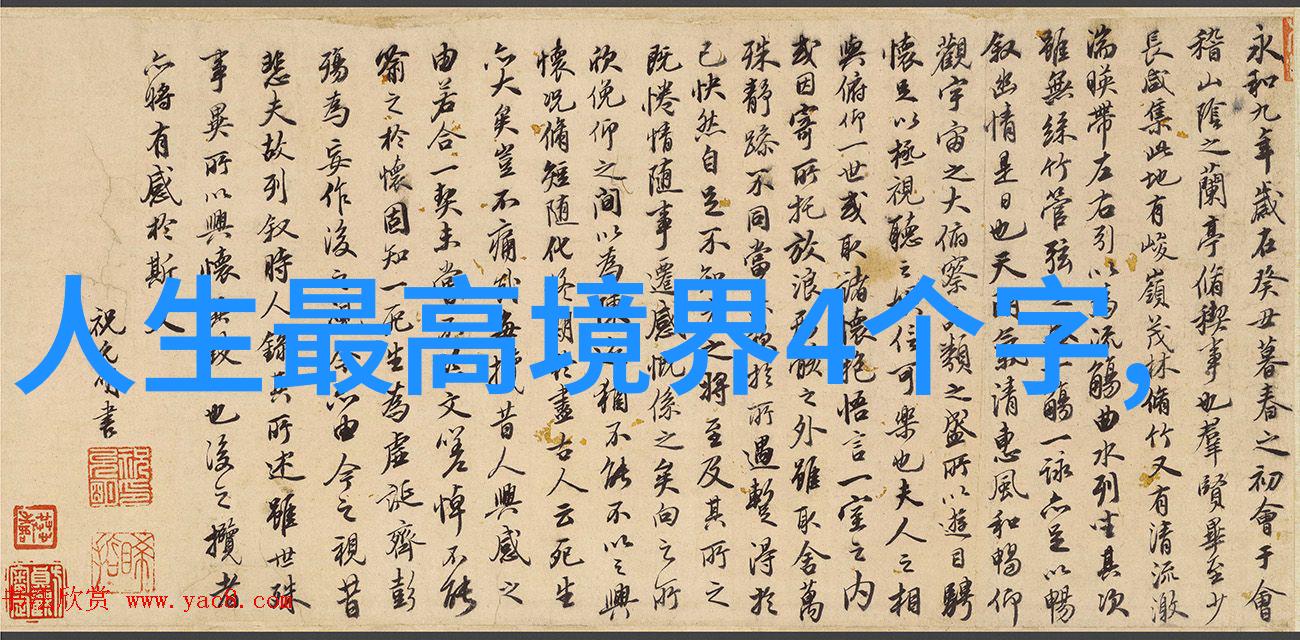 人生最高境界4个字,
永和九年歲在癸丑暮春之初會于會
稽山陰之蘭亭脩稧事也羣賢畢至少
長咸集此地有峻嶺茂林脩竹又有清流激
湍暎帶左右引以為流觴曲水列坐其次
雖無絲竹管弦之一觴一詠亦足以暢
叙幽情是日也天朗氣清惠風和暢仰
觀宇宙之大俯察品類之盛所以遊目騁
懷足以極視聽之娛信可樂也夫人之相
與俯仰一世或取諸懷抱悟言一室之內
或因寄所托放浪形骸之外雖取舍萬
殊靜躁不同當於所遇暫得於
己快然自足不知之將至及其所之
既惓情隨事遷感慨係之矣向之所
欣俛仰之間以為陳猶不能不以之興
懷況脩短隨化終期於盡古人云死生
亦大矣豈不痛哉每攬昔人興感之
由若合一契未嘗不文嗟悼不能
喻之於懷固知一死生為虛誕齊彭
殤為妄作後之今亦由今之視昔
悲夫故列叙時人錄其所述雖世殊
事異所以興懷致也後之攬者
亦將有感於斯文
祝允明書
书法欣赏 www.yac8.com